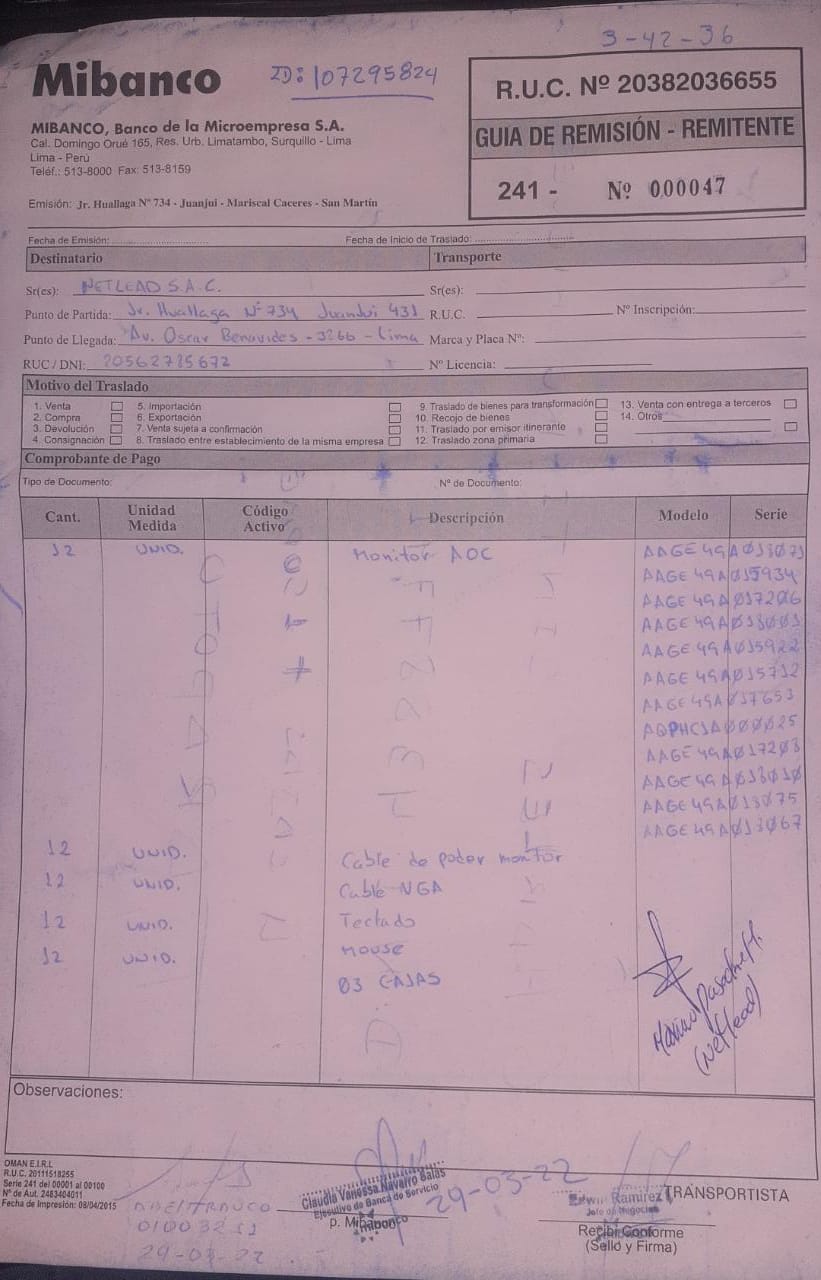 3-42-36
Mibanco
ID: 107295824
MIBANCO, Banco de la Microempresa S.A.
Cal. Domingo Orué 165, Res. Urb. Limatambo, Surquillo - Lima
Lima - Perú
Teléf.: 513-8000 Fax: 513-8159
Emisión: Jr. Huallaga Nº 734 - Juanjui - Mariscal Caceres - San Martín
R.U.C. Nº 20382036655
GUIA DE REMISIÓN - REMITENTE
241 - Nº 000047
Fecha de Emisión: Fecha de Inicio de Traslado:
Destinatario Transporte
Sr(es): NETLEAD S.A.C. Sr(es):
Punto de Partida: Jr. Huallaga Nº 734 Juanjui 431 R.U.C. Nº Inscripción:
Punto de Llegada: Av. Oscar Benavides - 3266 - Lima Marca y Placa Nº:
RUC / DNI: 20562785672 Nº Licencia:
Motivo del Traslado
1. Venta 5. Importación 9. Traslado de bienes para transformación 13. Venta con entrega a terceros
2. Compra 6. Exportación 10. Recojo de bienes 14. Otros
3. Devolución 7. Venta sujeta a confirmación 11. Traslado por emisor itinerante
4. Consignación 8. Traslado entre establecimiento de la misma empresa 12. Traslado zona primaria
Comprobante de Pago
Tipo de Documento: Nº de Documento:
Cant. Unidad Medida Código Activo Descripción Modelo Serie
12 UNID. Monitor AOC AAGE49A013071
AAGE49A015934
AAGE49A017206
AAGE49A013001
AAGE49A015922
AAGE49A015712
AAGE49A017653
AQPHC1A000025
AAGE49A017203
AAGE49A013010
AAGE49A013075
AAGE49A013067
12 UNID. Cable de poder monitor
12 UNID. Cable VGA
12 UNID. Teclado
12 UNID. Mouse
03 CAJAS
(Netlead)
Observaciones:
OMAN E.I.R.L
R.U.C. 20111518255
Serie 241 del 00001 al 00100
Nº de Aut. 2483404011
Fecha de Impresión: 08/04/2015
29-03-22
Claudia Vanessa Navarro Salas
Ejecutivo de Banca de Servicio
p. Mibanco
29-03-22
Edwin Ramirez TRANSPORTISTA
Jefe de Negocios
Recibí Conforme
(Sello y Firma)